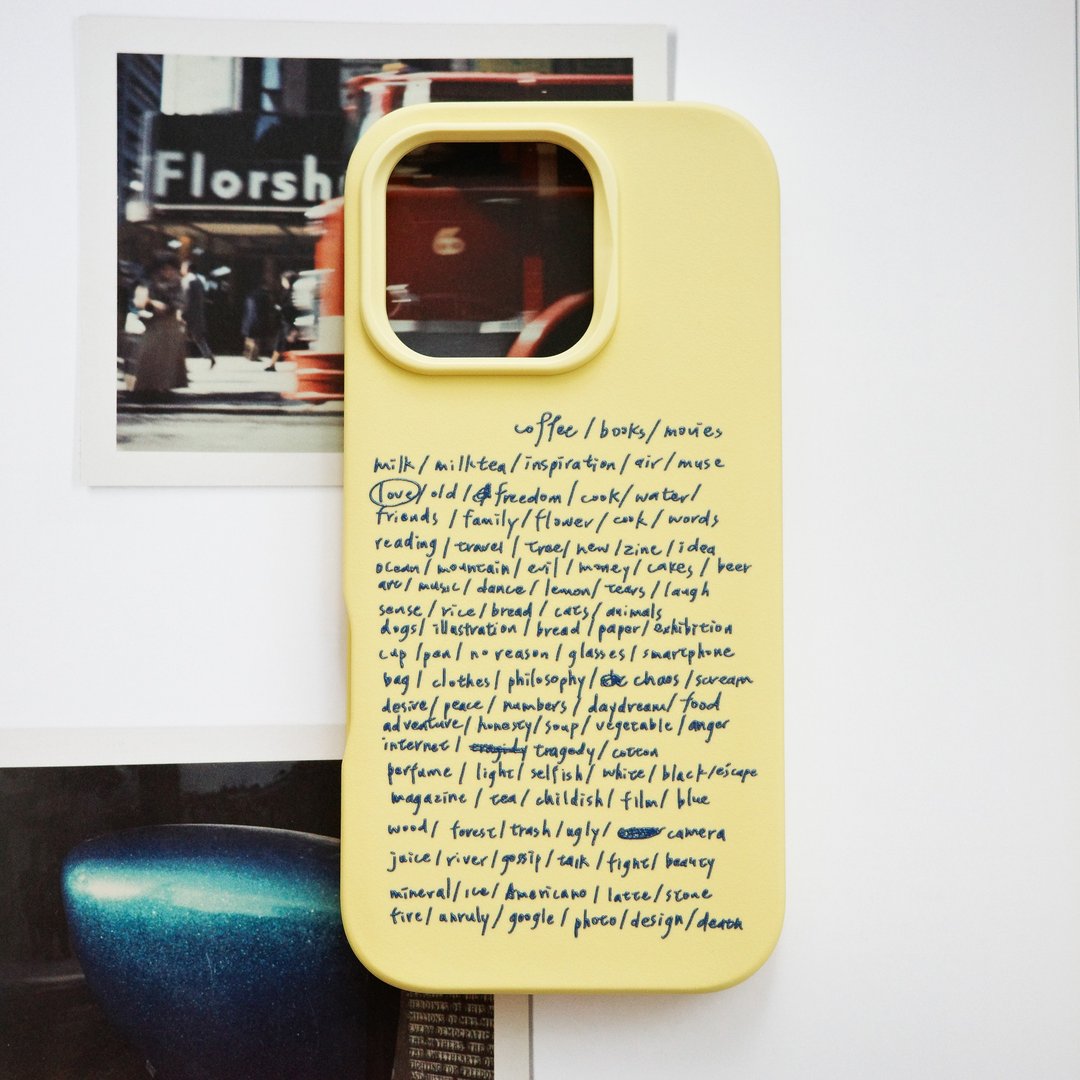 Florsh
6
coffee / books / movies
milk / milktea / inspiration / air / muse
love / old / freedom / cook / water /
friends / family / flower / cook / words
reading / travel / tree / new / zine / idea
ocean / mountain / evil / money / cakes / beer
art / music / dance / lemon / tears / laugh
sense / rice / bread / cats / animals
dogs / illustration / bread / paper / exhibition
cup / pen / no reason / glasses / smartphone
bag / clothes / philosophy / chaos / scream
desire / peace / numbers / daydream / food
adventure / honesty / soup / vegetable / anger
internet / tragedy / cotton
perfume / light / selfish / white / black / escape
magazine / tea / childish / film / blue
wood / forest / trash / ugly / camera
juice / river / gossip / talk / fight / beauty
mineral / ice / Americano / latte / stone
fire / unruly / google / photo / design / death
HEROINES OF THIS
MILLIONS OF MRS. MI
EVERY DEMOCRATIC
THE MOTHERS, THE
THE SWEETHEARTS OF
FIGHTING FOR FREEDOM